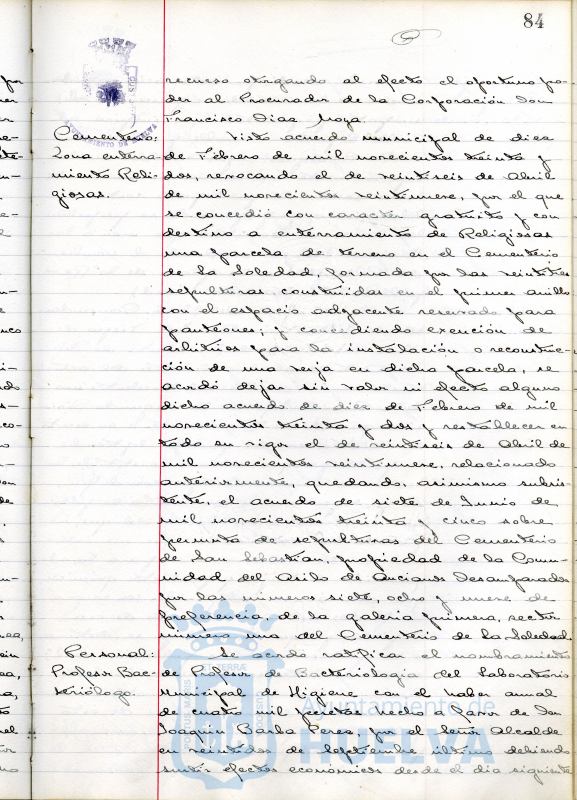 84
recurso otorgando al efecto el oportuno po-
der al Procurador de la Corporación Don
Francisco Díaz Moya.
Cementerio:
Zona enterra-
miento Reli-
giosas.
Visto acuerdo municipal de diez
de Febrero de mil novecientos treinta y
dos, revocando el de veintiseis de Abril
de mil novecientos veintinueve, por el que
se concedió con carácter gratuito y con
destino a enterramiento de Religiosas
una parcela de terreno en el Cementerio
de la Soledad, formada por las veintitres
sepulturas construidas en el primer anillo
con el espacio adyacente reservado para
panteones; y concediendo exención de
arbitrios para la instalación o reconstruc-
ción de una verja en dicha parcela, se
acordó dejar sin valor ni efecto alguno
dicho acuerdo de diez de Febrero de mil
novecientos treinta y dos y restablecer en
todo su vigor el de veintiseis de Abril de
mil novecientos veintinueve, relacionado
anteriormente, quedando, asimismo subsis-
tente, el acuerdo de siete de Junio de
mil novecientos treinta y cinco sobre
permuta de sepulturas del Cementerio
de San Sebastián, propiedad de la Comu-
nidad del Asilo de Ancianos Desamparados
por las números siete, ocho y nueve de
preferencia, de la galería primera, sector
número uno del Cementerio de la Soledad.
Personal:
Profesor Bac-
teriólogo.
Se acordó ratificar el nombramiento
de Profesor de Bacteriología del Laboratorio
Municipal de Higiene con el haber anual
de cuatro mil pesetas hecho a favor de Don
Joaquín Barba Perez por el Señor Alcalde
en veintidos de Septiembre último debiendo
surtir efectos económicos desde el día siguiente
Ayuntamiento de
HUELVA